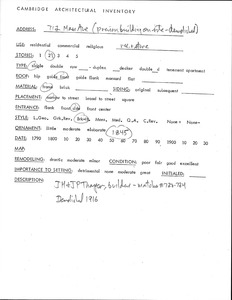 CAMBRIDGE ARCHITECTURAL INVENTORY
ADDRESS: 712 Mass Ave (previous building on site - demolished)
USE residential commercial religious
STORIES: 1 2½ 3 4 5
TYPE: single double row - duplex decker double d tenement apartment
ROOF: hip guide front guide flank mansard flat
MATERIAL: frame brick SIDING: original subsequent
PLACEMENT: narrow to street broad to street square
ENTRANCE: flank front side front center
STYLE: L.Geo, Grk.Rev, Brack, Mans, Med, Q.A, C.Rev. None+ None-
ORNAMENT: little moderate elaborate 1845
DATE: 1790 1800 10 20 30 40 50 60 70 80 90 1900 10 20 30
MAP:
REMODELING: drastic moderate minor CONDITION: poor fair good excellent
IMPORTANCE TO SETTING: detrimental none moderate great INITIALED:
DESCRIPTION: JH+JP Thayer, builder - matches # 722-724
Demolished 1916